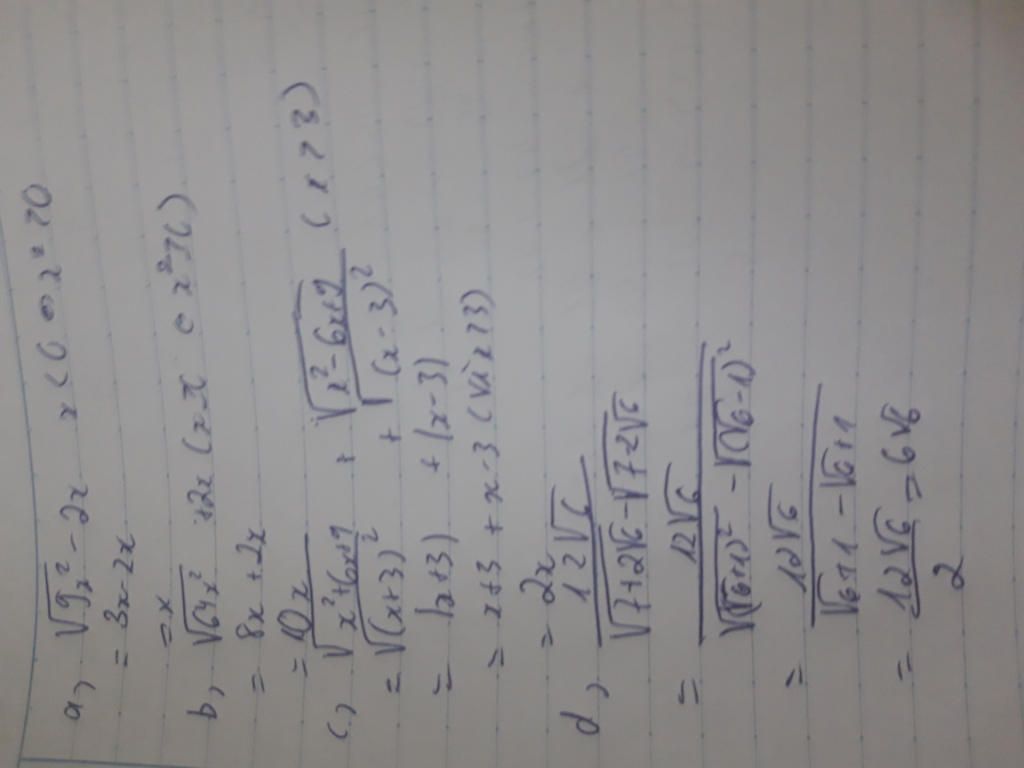 a, √9x² - 2x
= 3x - 2x
= x
b, √64x² + 2x
= 8x + 2x
= 10x
c, √x²+6x+9 + √x²-6x+9 (x ≥ 3)
= √(x+3)² + √(x-3)²
= |x+3) + |x-3)
= x+3 + x-3 (vì x ≥ 3)
= 2x
d, 12√6 / √7+2√6 - √7-2√6
= 12√6 / √(√6+1)² - √(√6-1)²
= 12√6 / √6+1 - √6+1
= 12√6 / 2 = 6√6